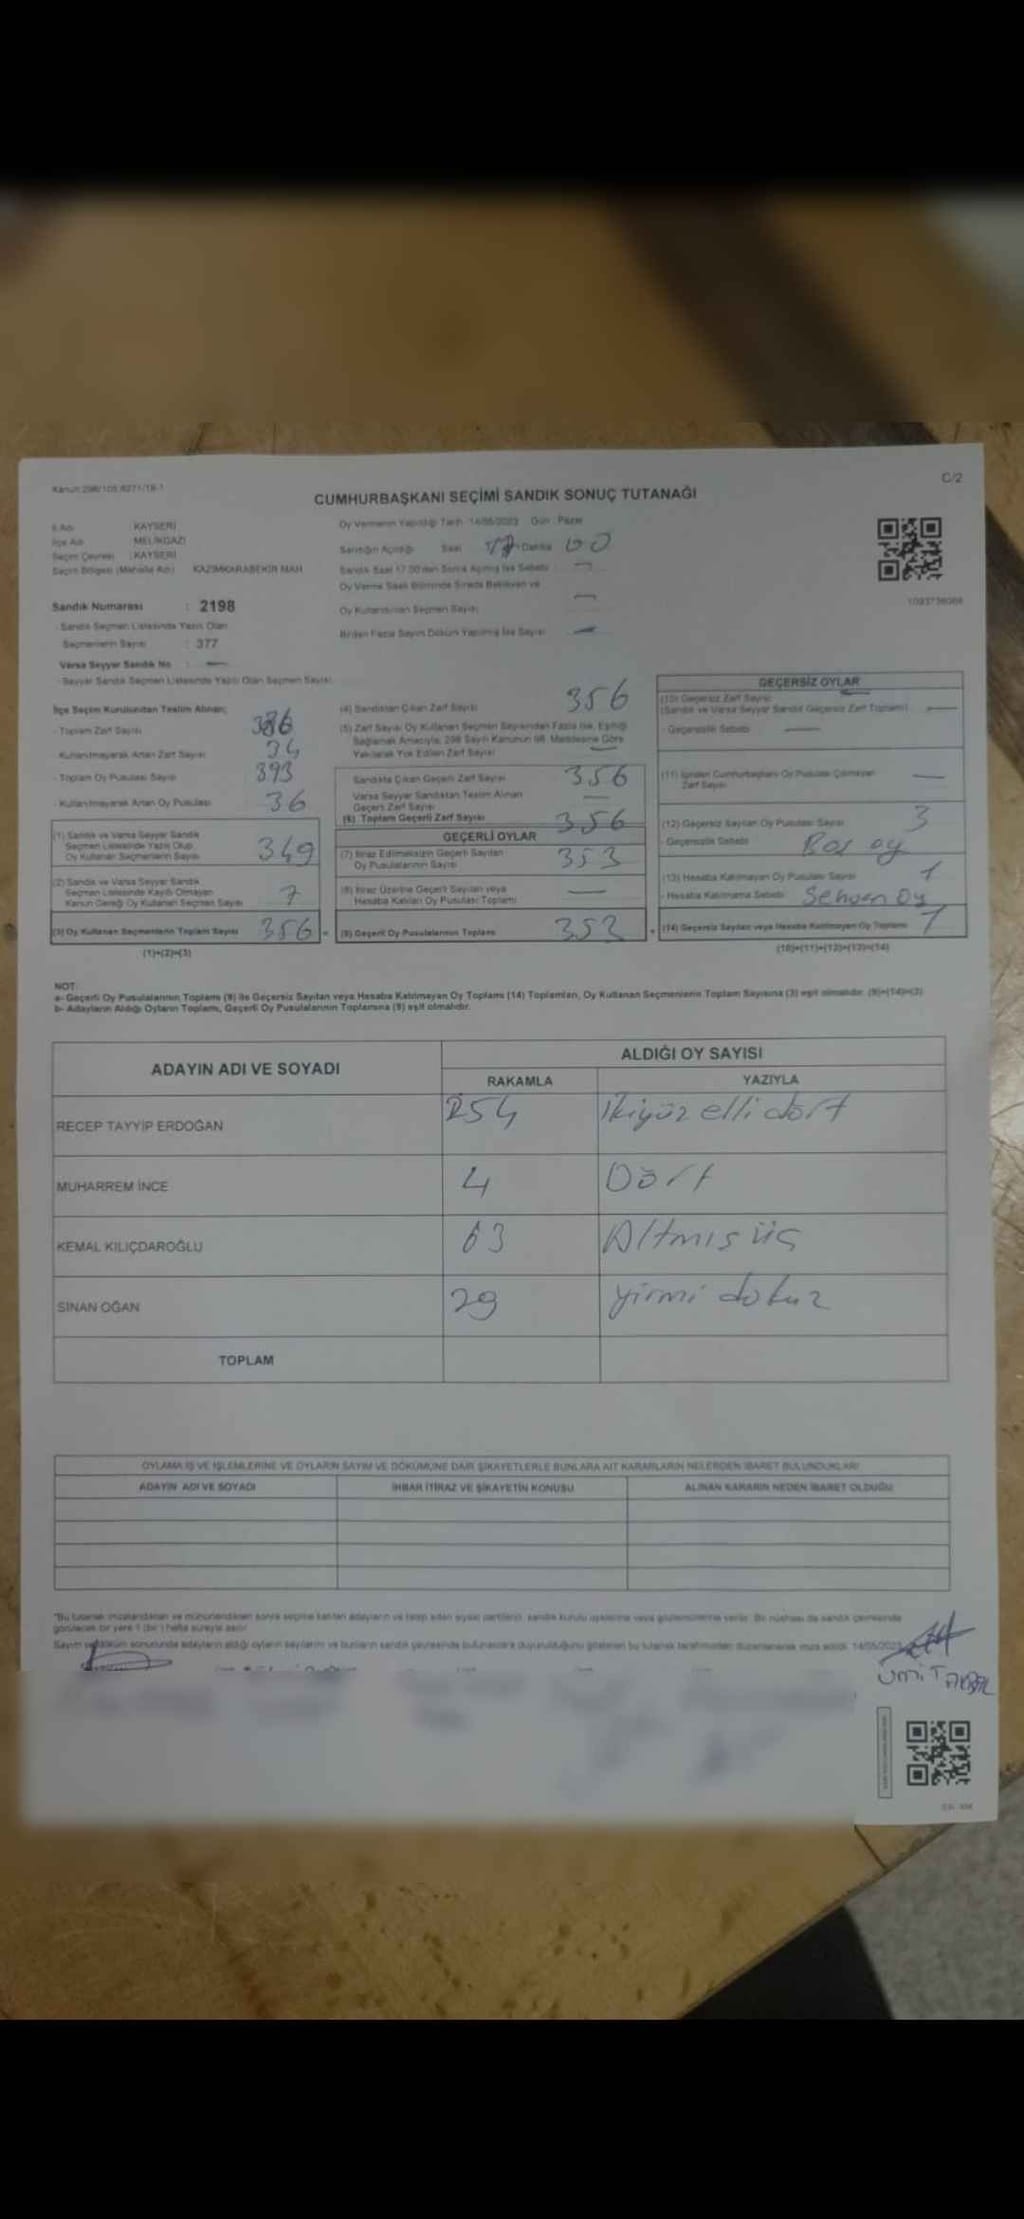 Kanun:298/105,6271/18-1
C/2
CUMHURBAŞKANI SEÇİMİ SANDIK SONUÇ TUTANAĞI
İl Adı : KAYSERİ
İlçe Adı : MELİKGAZİ
Seçim Çevresi : KAYSERİ
Seçim Bölgesi (Mahalle Adı) KAZIMKARABEKİR MAH
Sandık Numarası : 2198
Sandık Seçmen Listesinde Yazılı Olan
Seçmenlerin Sayısı : 377
Varsa Seyyar Sandık No : —
- Seyyar Sandık Seçmen Listesinde Yazılı Olan Seçmen Sayısı:
Oy Vermenin Yapıldığı Tarih :14/05/2023 Gün : Pazar
Sandığın Açıldığı Saat 17 Dakika 00
Sandık Saat 17.00'den Sonra Açılmış İse Sebebi —
Oy Verme Saati Bitiminde Sırada Bekleyen ve
Oy Kullandırılan Seçmen Sayısı —
Birden Fazla Sayım Döküm Yapılmış İse Sayısı —
1093736068
İlçe Seçim Kurulundan Teslim Alınan;
- Toplam Zarf Sayısı 386
- Kullanılmayarak Artan Zarf Sayısı 34
- Toplam Oy Pusulası Sayısı 393
- Kullanılmayarak Artan Oy Pusulası 36
(1) Sandık ve Varsa Seyyar Sandık
Seçmen Listesinde Yazılı Olup
Oy Kullanan Seçmenlerin Sayısı 349
(2) Sandık ve Varsa Seyyar Sandık
Seçmen Listesinde Kayıtlı Olmayan
Kanun Gereği Oy Kullanan Seçmen Sayısı 7
(3) Oy Kullanan Seçmenlerin Toplam Sayısı 356 =
(1)+(2)=(3)
(4) Sandıktan Çıkan Zarf Sayısı 356
(5) Zarf Sayısı Oy Kullanan Seçmen Sayısından Fazla İse, Eşitliği
Sağlamak Amacıyla, 298 Sayılı Kanunun 98. Maddesine Göre
Yakılarak Yok Edilen Zarf Sayısı —
Sandıkta Çıkan Geçerli Zarf Sayısı 356
Varsa Seyyar Sandıktan Teslim Alınan
Geçerli Zarf Sayısı —
(6) Toplam Geçerli Zarf Sayısı 356
GEÇERLİ OYLAR
(7) İtiraz Edilmeksizin Geçerli Sayılan
Oy Pusulalarının Sayısı 353
(8) İtiraz Üzerine Geçerli Sayılan veya
Hesaba Katılan Oy Pusulası Toplamı —
(9) Geçerli Oy Pusulalarının Toplamı +
GEÇERSİZ OYLAR
(10) Geçersiz Zarf Sayısı
(Sandık ve Varsa Seyyar Sandık Geçersiz Zarf Toplamı) —
- Geçersizlik Sebebi —
(11) İçinden Cumhurbaşkanı Oy Pusulası Çıkmayan
Zarf Sayısı —
(12) Geçersiz Sayılan Oy Pusulası Sayısı 3
- Geçersizlik Sebebi Boş oy
(13) Hesaba Katılmayan Oy Pusulası Sayısı 1
- Hesaba Katılmama Sebebi Sehven Oy
(14) Geçersiz Sayılan veya Hesaba Katılmayan Oy Toplamı
(10)+(11)+(12)+(13)=(14)
NOT:
a- Geçerli Oy Pusulalarının Toplamı (9) ile Geçersiz Sayılan veya Hesaba Katılmayan Oy Toplamı (14) Toplamları, Oy Kullanan Seçmenlerin Toplam Sayısına (3) eşit olmalıdır. (9)+(14)=(3)
b- Adayların Aldığı Oyların Toplamı, Geçerli Oy Pusulalarının Toplamına (9) eşit olmalıdır.
ADAYIN ADI VE SOYADI
ALDIĞI OY SAYISI
RAKAMLA YAZIYLA
RECEP TAYYİP ERDOĞAN 254 İkiyüz elli dört
MUHARREM İNCE 4 Dört
KEMAL KILIÇDAROĞLU 63 Altmış üç
SİNAN OĞAN 29 yirmi dokuz
TOPLAM
OYLAMA İŞ VE İŞLEMLERİNE VE OYLARIN SAYIM VE DÖKÜMÜNE DAİR ŞİKAYETLERLE BUNLARA AİT KARARLARIN NELERDEN İBARET BULUNDUKLARI
ADAYIN ADI VE SOYADI İHBAR İTİRAZ VE ŞİKAYETİN KONUSU ALINAN KARARIN NEDEN İBARET OLDUĞU
"Bu tutanak imzalandıktan ve mühürlendikten sonra seçime katılan adayların ve talep eden siyasi partilerin, sandık kurulu üyelerine veya gözlemcilerine verilir. Bir nüshası da sandık çevresinde
görülecek bir yere 1 (bir) hafta süreyle asılır.
Sayım ve döküm sonucunda adayların aldığı oyların sayılarını ve bunların sandık çevresinde bulunanlara duyurulduğunu gösteren bu tutanak tarafımızdan düzenlenerek imza edildi. 14/05/2023
ÜMİT